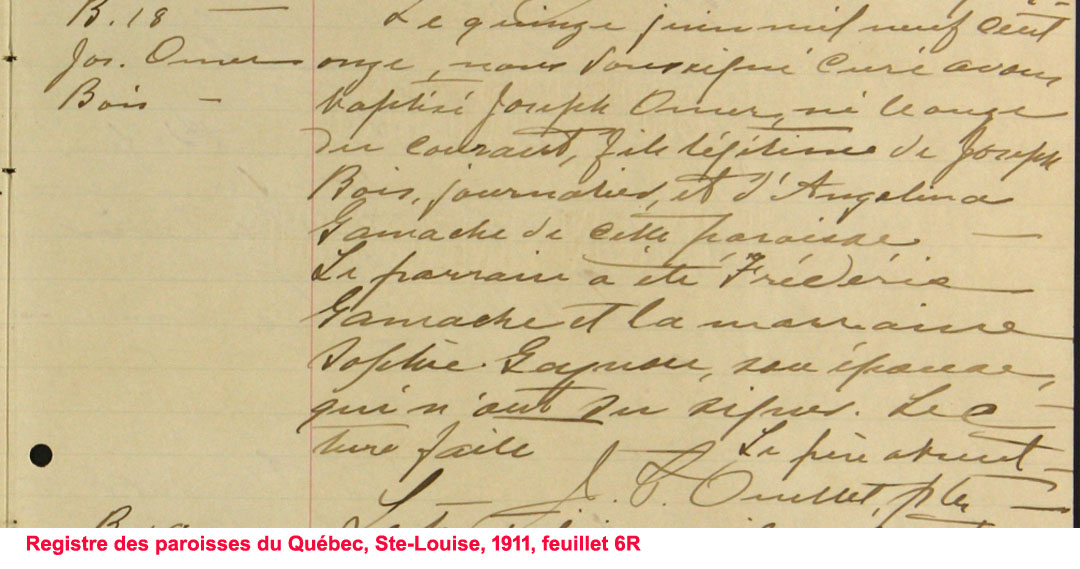 B. 18
Jos. Omer
Bois —
Le quinze juin mil neuf cent
onze, nous soussigné curé avons
baptisé Joseph Omer, né le onze
du courant, fils légitime de Joseph
Bois, journalier, et d'Angelina
Gamache de cette paroisse —
Le parrain a été Frédéric
Gamache et la marraine
Sophie Gagnon, son épouse,
qui n'ont su signer. Lec-
ture faite Le père absent —
J. Ouellet, ptre
Registre des paroisses du Québec, Ste-Louise, 1911, feuillet 6R